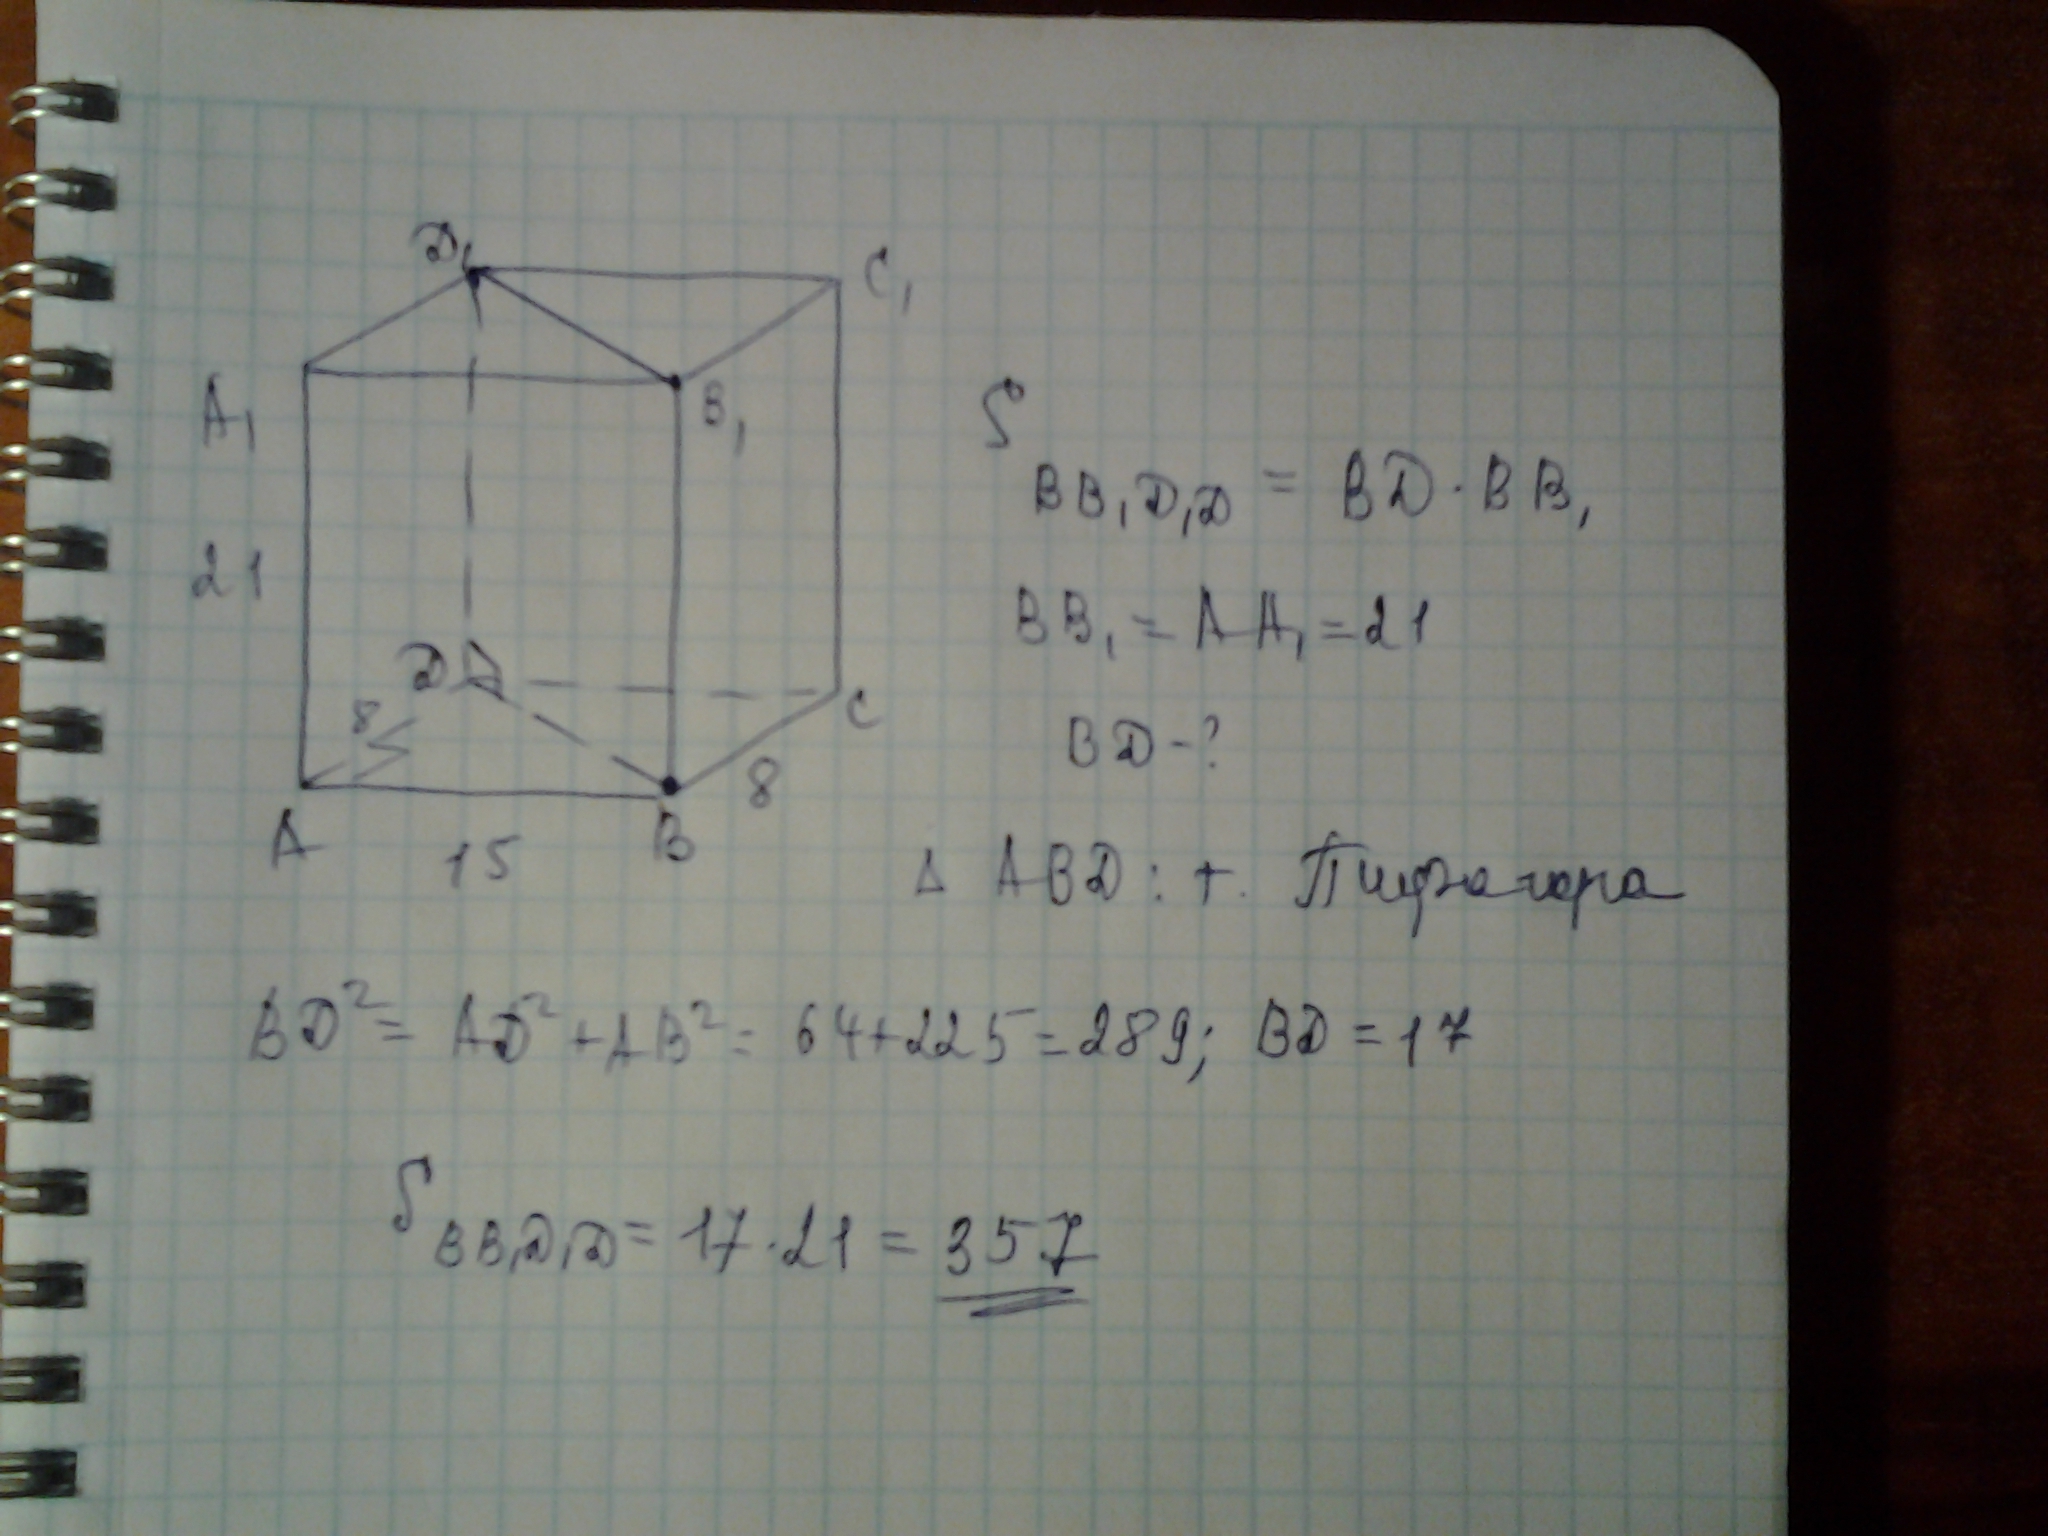 D₁
C₁
A₁
B₁
21
D
8
C
8
A
15
B
S BB₁D₁D = BD · BB₁
BB₁ = AA₁ = 21
BD - ?
Δ ABD : т. Пифагора
BD² = AD² + AB² = 64+225 = 289; BD = 17
S BB₁D₁D = 17 · 21 = 357